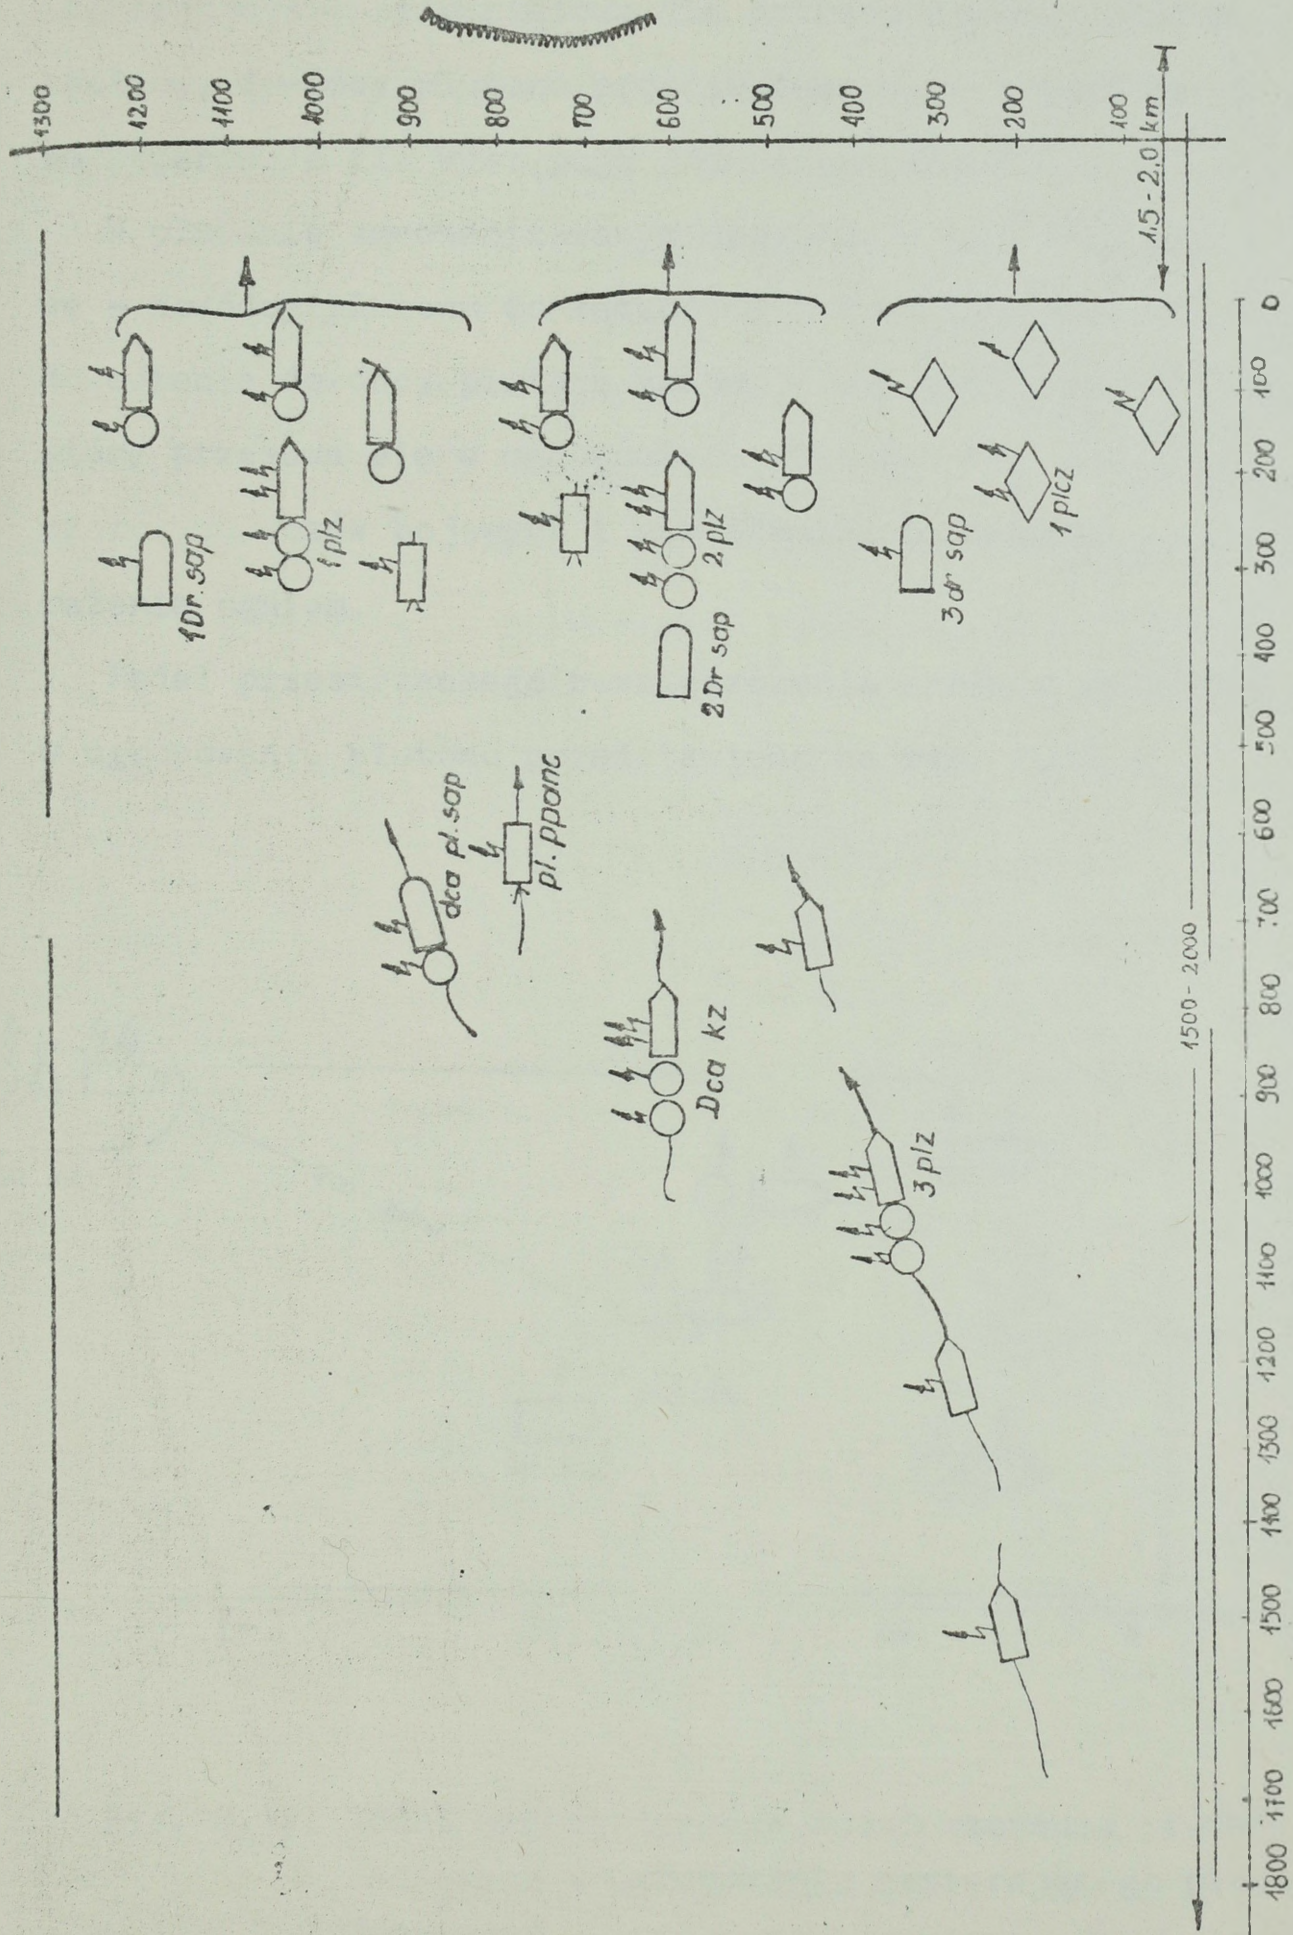 1300
1200
1100
1000
900
800
700
600
500
400
300
200
100
1,5 - 2.0 km
1Dr. sap
1 plz
2 plz
2 Dr sap
3 dr sap
1 plcz
dca pl. sap
pl. ppanc
Dca kz
3 plz
1500 - 2000
0
100
200
300
400
500
600
700
800
900
1000
1100
1200
1300
1400
1500
1600
1700
1800